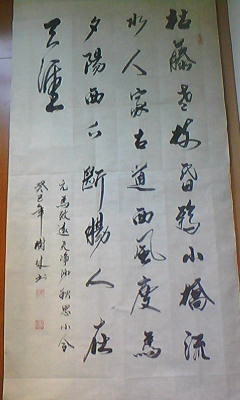 枯藤老樹昏鴉小橋流
水人家古道西風瘦馬
夕陽西下斷腸人在
天涯
元馬致遠天净沙秋思小令
癸巳年樹林书